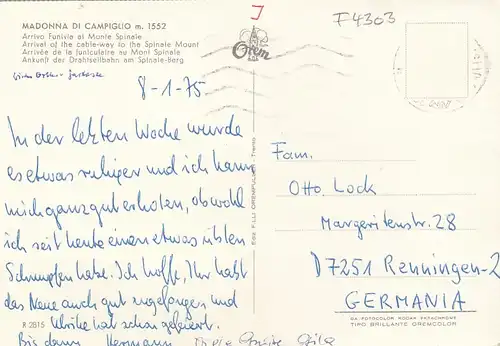 F4303
MADONNA DI CAMPIGLIO m. 1552
Arrivo Funivia al Monte Spinale
Arrival of the cable-way to the Spinale Mount
Arrivée de la funiculaire au Mont Spinale
Ankunft der Drahtseilbahn am Spinale-Berg
Orem
8-1-75
In der letzten Woche wurde
es etwas ruhiger und ich kann
mich ganz gut erholen, obwohl
ich seit heute einen etwas üblen
Schnupfen habe. Ich hoffe, Ihr habt
das Neue auch gut angefangen und
Ulrike hat schön gefeiert.
Bis dann Hermann
Ediz. F.LLI OREMPULLER - Trento
Fam.
Otto Lock
Margeritenstr. 28
D7251 Renningen-2
GERMANIA
DA FOTOCOLOR KODAK EKTACHROME
TIPO BRILLANTE OREMCOLOR
R 2815